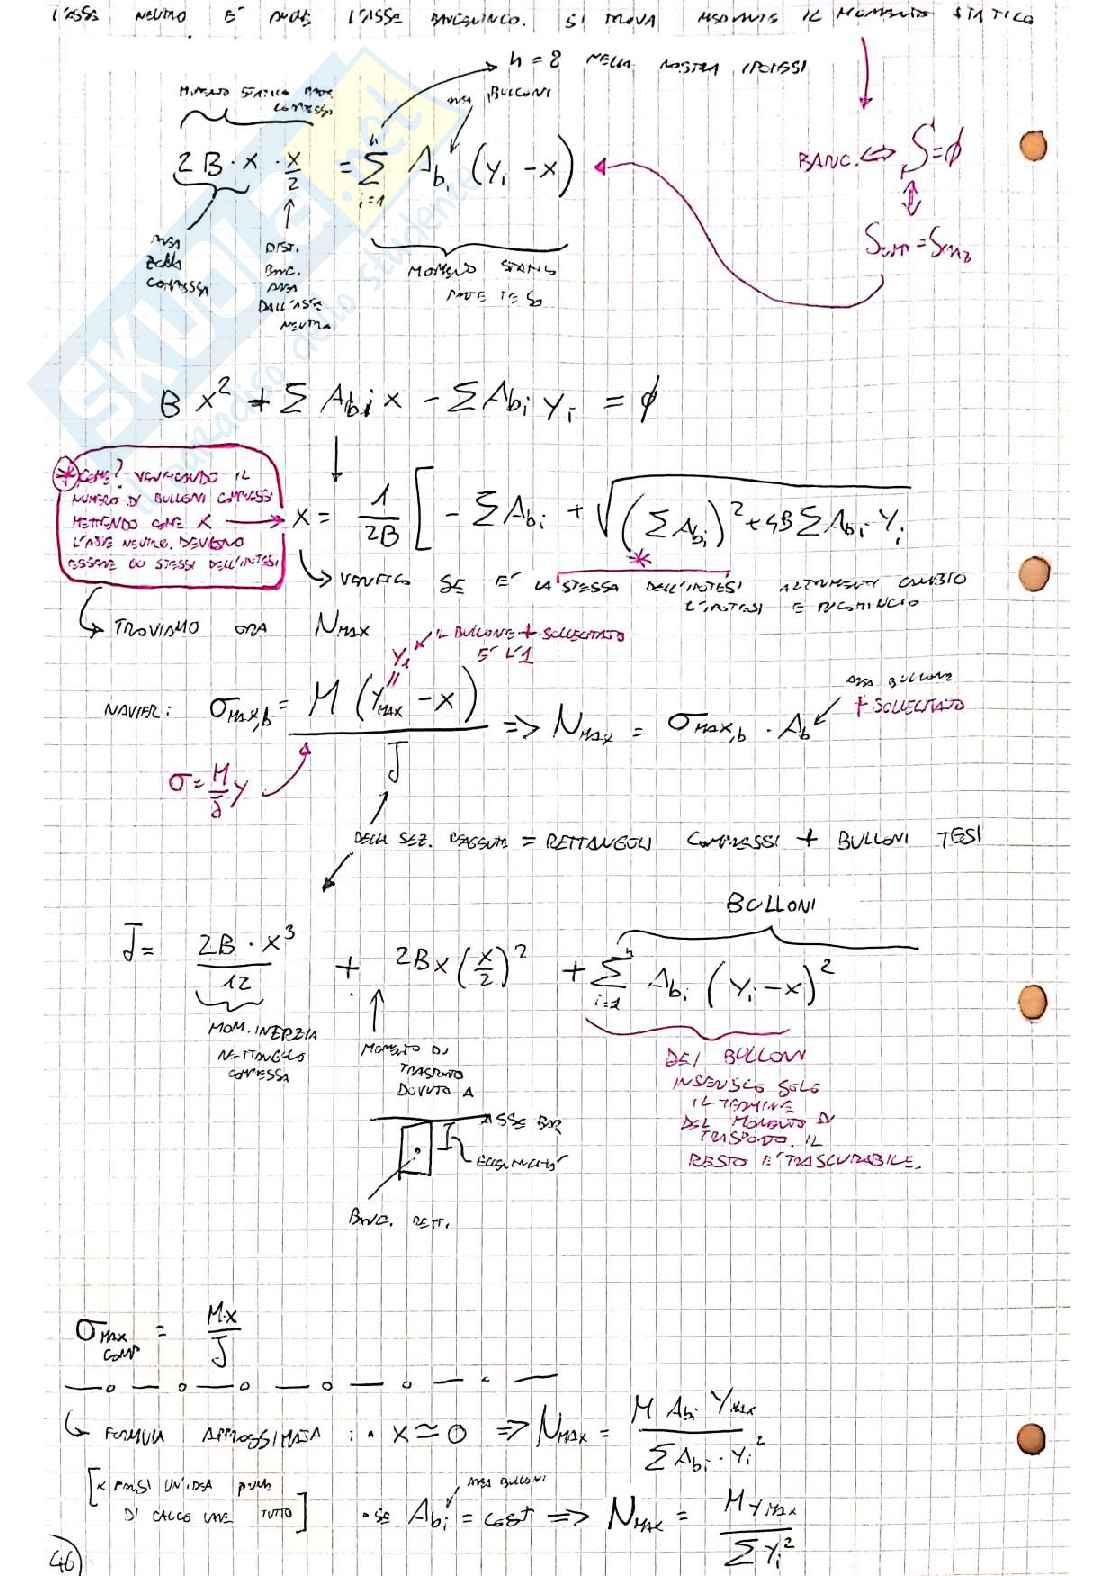 L'ASSE NEUTRO E' ANCHE L'ASSE BARICENTRICO. SI TROVA MEDIANTE IL MOMENTO STATICO
h = 2 NELLA NOSTRA IPOTESI
MOMENTO STATICO PARTE COMPRESSA
AREA BULLONI
2B · x · x/2 = Σ_{i=1}^{n} A_{bi} (y_i - x)
BARIC. ⇔ S = ∅
AREA ZONA COMPRESSA
DIST. BARIC. AREA DALL'ASSE NEUTRO
MOMENTO STATICO PARTE TESA
B x² + Σ A_{bi} x - Σ A_{bi} y_i = ∅
* COME? VERIFICANDO IL
NUMERO DI BULLONI COMPRESSI
METTENDO COME X
L'ASSE NEUTRO. DEVONO
ESSERE GLI STESSI DELL'IPOTESI
x = 1/2B [ - Σ A_{bi} + √( (Σ A_{bi})² + 4B Σ A_{bi} · y_i
*
VERIFICO SE E' LA STESSA DELL'IPOTESI ALTRIMENTI CAMBIO
L'IPOTESI E RICOMINCIO
TROVIAMO ORA N_{MAX}
IL BULLONE + SOLLECITATO
E' L'1
y_1
=
NAVIER: σ_{MAX,b} = M (y_{MAX} - x) / J ⇒ N_{MAX} = σ_{MAX,b} · A_b
AREA BULLONE
+ SOLLECITATO
σ = M/J y
DELLA SEZ. REAGENTE = RETTANGOLI COMPRESSI + BULLONI TESI
BULLONI
J = 2B · x³/12 + 2Bx (x/2)² + Σ_{i=1}^{n} A_{bi} (y_i - x)²
MOM. INERZIA
RETTANGOLO
COMPRESSA
MOMENTO DI
TRASPORTO
DOVUTO A
DEI BULLONI
INSERISCO SOLO
IL TERMINE
DEL MOMENTO DI
TRASPORTO. IL
RESTO E' TRASCURABILE.
ASSE BAR
BARIC. RETT.
σ_{MAX COMP} = M·x / J
FORMULA APPROSSIMATA : · x ≃ 0 ⇒ N_{MAX} = M A_{bi} y_{MAX} / Σ A_{bi} · y_i²
[ X FARSI UN'IDEA PRIMA
DI CALCOLARE TUTTO ]
AREA BULLONI
· SE A_{bi} = COST ⇒ N_{MAX} = M y_{MAX} / Σ y_i²
46
SKUOLA.net